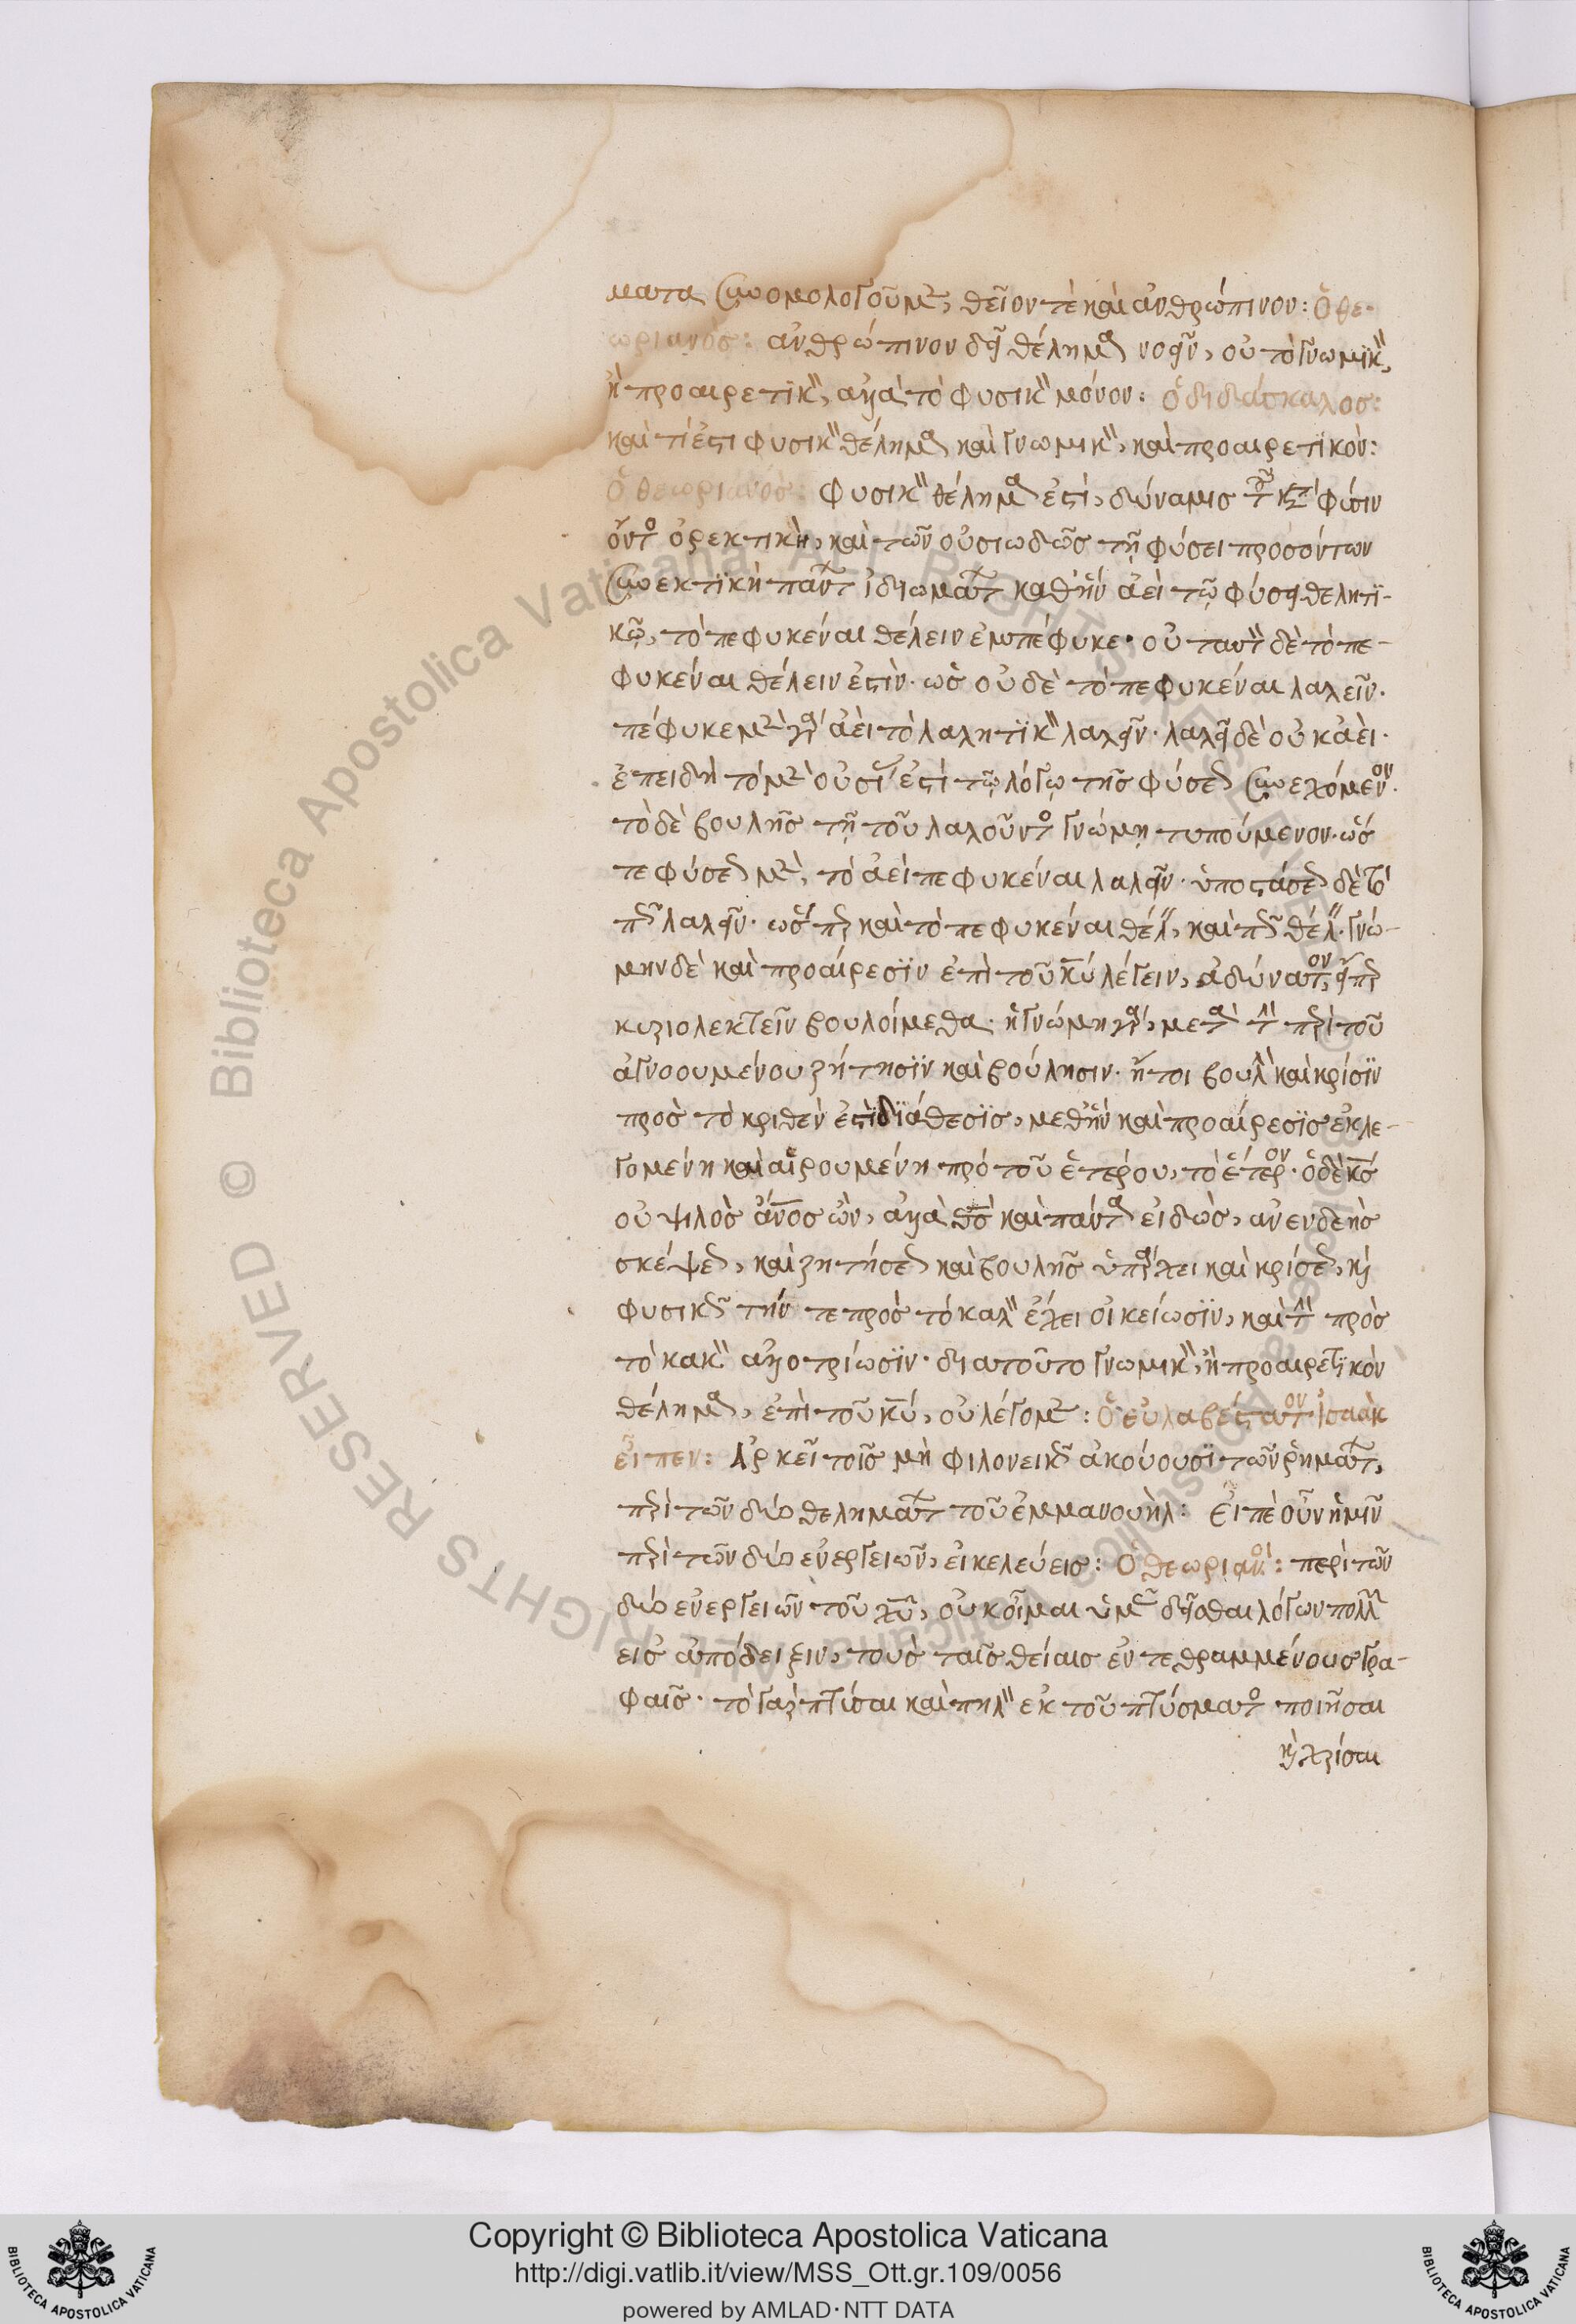 ματα συνομολογοῦμεν, θεῖον τὲ καὶ ἀνθρώπινον: Ὁ θε-
ωριανὸς: ἀνθρώπινον δεῖ θέλημα νοεῖν, οὐ τὸ γνωμικὸν,
ἢ προαιρετικὸν, ἀλλὰ τὸ φυσικὸν μόνον: Ὁ διδάσκαλος:
καὶ τί ἐστι φυσικὸν θέλημα καὶ γνωμικὸν, καὶ προαιρετικὸν:
Ὁ θεωριανὸς: Φυσικὸν θέλημα ἐστὶ, δύναμις τοῦ κατὰ φύσιν
ὄντος ὀρεκτικὴ, καὶ τῶν οὐσιωδῶς τῇ φύσει προσόντων
συνεκτικὴ πάντων ἰδιωμάτων καθ' ἣν ἀεὶ τῷ φύσει θελητι-
κῷ, τὸ πεφυκέναι θέλειν ἐμπέφυκε· οὐ ταυτὸν δὲ τὸ πε-
φυκέναι θέλειν ἐστὶν· ὡς οὐδὲ τὸ πεφυκέναι λαλεῖν·
πέφυκε μὲν γὰρ ἀεὶ τὸ λαλητικὸν λαλεῖν· λαλεῖ δὲ οὐκ ἀεὶ·
ἐπειδὴ τὸ μὲν οὐσίας ἐστὶ τῷ λόγῳ τῆς φύσεως συνεχόμενον·
τὸ δὲ βουλῆς τῇ τοῦ λαλοῦντος γνώμῃ τυπούμενον· ὥσ
τε φύσεως μὲν, τὸ ἀεὶ πεφυκέναι λαλεῖν· ὑποστάσεως δὲ τὸ
πῶς λαλεῖν· ὥσπερ καὶ τὸ πεφυκέναι θέλειν, καὶ πῶς θέλειν· γνώ-
μην δὲ καὶ προαίρεσιν ἐπὶ τοῦ κυ λέγειν, ἀδύνατον, εἴπερ
κυριολεκτεῖν βουλοίμεθα· ἡ γνώμη γὰρ, μετὰ τὴν περὶ τοῦ
ἀγνοουμένου ζήτησιν καὶ βούλησιν· ἤτοι βουλὴν καὶ κρίσιν
πρὸς τὸ κριθὲν ἐστὶ διάθεσις, μεθ' ἣν καὶ προαίρεσις ἐκλε-
γομένη καὶ αἱρουμένη πρὸ τοῦ ἑτέρου, τὸ ἕτερον· ὁ δὲ κς
οὐ ψιλὸς ἄνος ὢν, ἀλλὰ θς καὶ πάντα εἰδὼς, ἀνενδεὴς
σκέψεως, καὶ ζητήσεως καὶ βουλῆς ὑπάρχει καὶ κρίσεως, καὶ
φυσικῶς τήν τε πρὸς τὸ καλὸν ἔχει οἰκείωσιν, καὶ τὴν πρὸς
τὸ κακὸν ἀλλοτρίωσιν· διατοῦτο γνωμικὸν, ἢ προαιρετικὸν
θέλημα, ἐπὶ τοῦ κυ, οὐ λέγομεν: Ὁ εὐλαβέστατον Ἰσαὰκ
εἶπεν: Ἀρκεῖ τοῖς μὴ φιλονείκως ἀκούουσι τῶν ῥημάτων,
περὶ τῶν δύο θελημάτων τοῦ ἐμμανουὴλ: Εἰπὲ οὖν ἡμῖν
περὶ τῶν δύο ἐνεργειῶν, εἰ κελεύεις: Ὁ θεωριανὸς: περὶ τῶν
δύο ἐνεργειῶν τοῦ χυ, οὐκ οἶμαι ὑμᾶς δεῖσθαι λόγων πολλῶν
εἰς ἀπόδειξιν, τοὺς ταῖς θείαις ἐντεθραμμένους γρα-
φαῖς· τὸ γὰρ πτύσαι καὶ πηλὸν ἐκ τοῦ πτύσματος ποιῆσαι
καὶ χρίσαι
Biblioteca Apostolica Vaticana ALL RIGHTS RESERVED ©
Copyright © Biblioteca Apostolica Vaticana
http://digi.vatlib.it/view/MSS_Ott.gr.109/0056
powered by AMLAD·NTT DATA
BIBLIOTECA APOSTOLICA VATICANA
BIBLIOTECA APOSTOLICA VATICANA